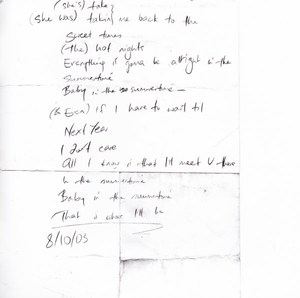 (she's) take
(she was) takin me back to the
sweet times
(the) hot nights
Everything is gonna be alright in the
summertime
Baby in the summertime —
(& Even) if I have to wait til
Next Year
I don't care
All I know is that I'll meet U there
in the summertime
Baby in the summertime
That is where I'll be
8/10/03